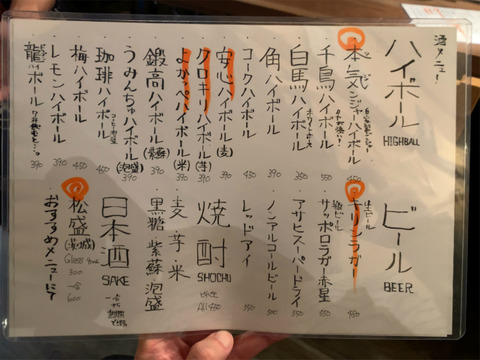 酒メニュー
ハイボール
HIGHBALL
本気メンジャーハイボール
450
千鳥ハイボール
550
白馬ハイボール
ホワイトホース
450
角ハイボール
390
コークハイボール
450
安心ハイボール(麦)
390
クロキリハイボール(芋)
390
よかっぺハイボール(米)
390
鍛高ハイボール(紫蘇)
390
うみんちゅハイボール(泡盛)
390
珈琲ハイボール
450
梅ハイボール
450
レモンハイボール
390
龍ハイボール
390
ビール
BEER
生ビール
キリンラガー
450
瓶ビール
サッポロラガー赤星
アサヒスーパードライ
ノンアルコールビール
レッドアイ
焼酎
SHOCHU
麦・芋・米
黒糖 紫蘇 泡盛
All 450
日本酒
SAKE
松盛(茨城)
Glass
300
600
おすすめメニューにて